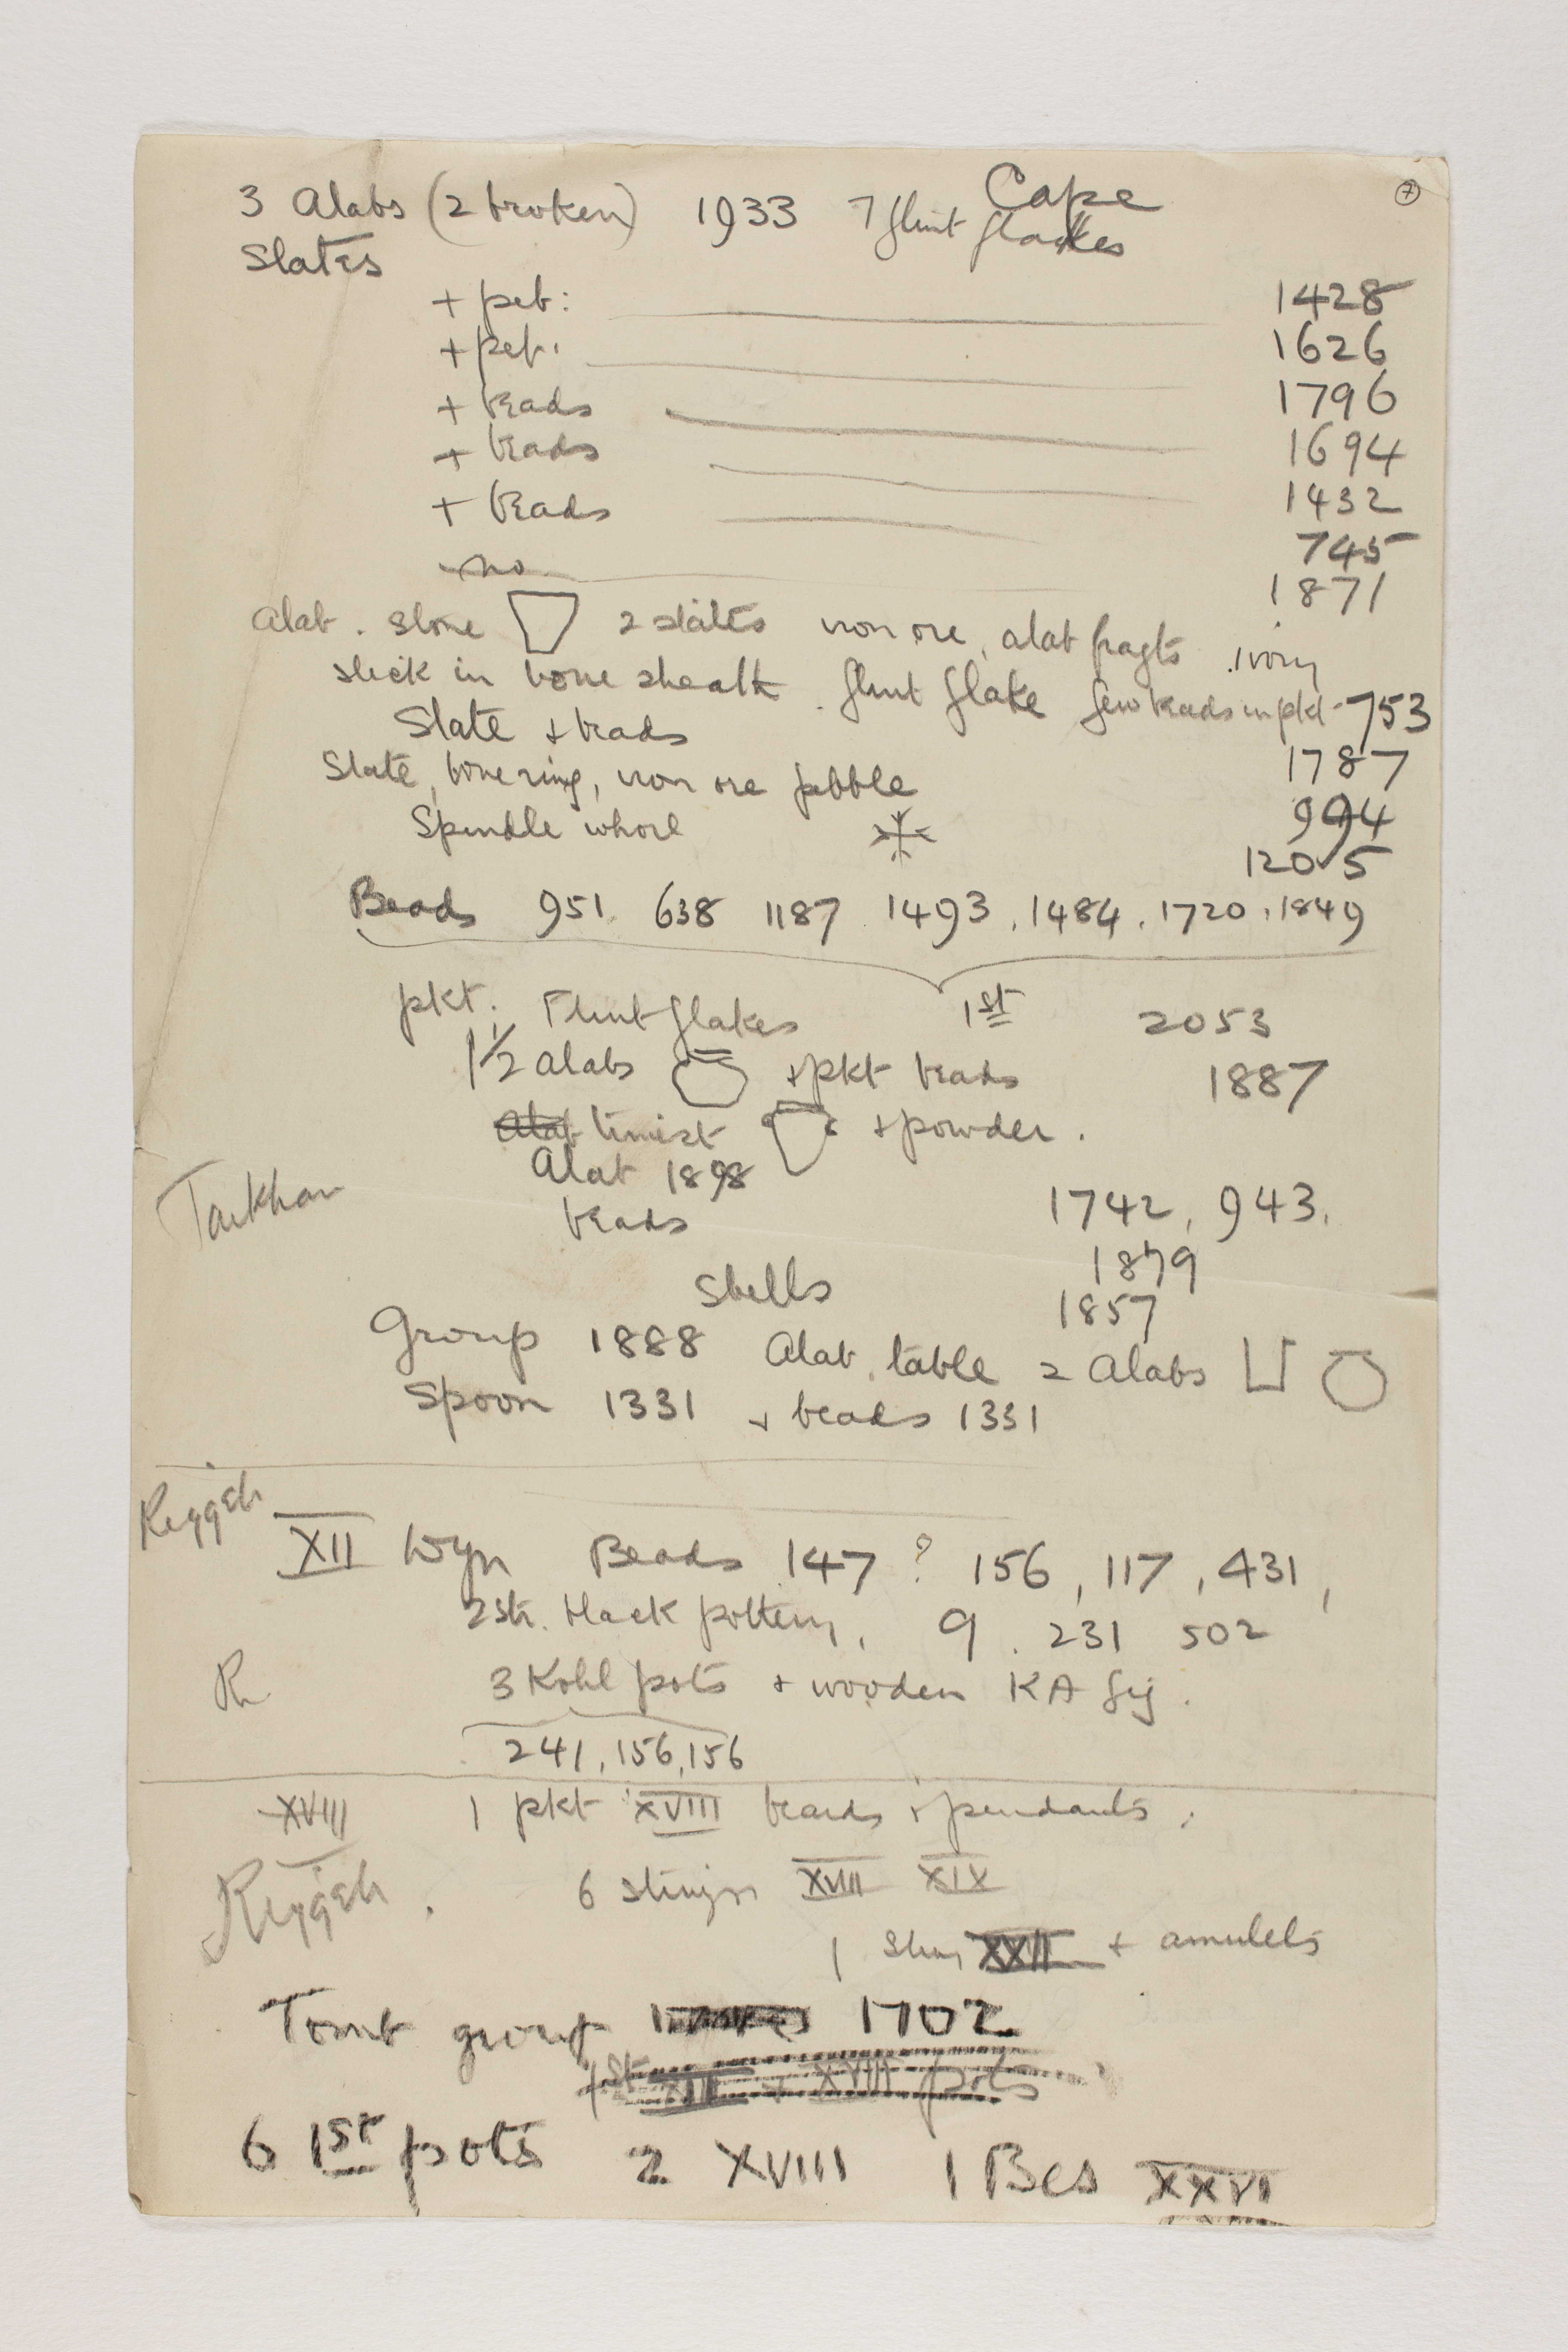 Cape
7
3 Alabs (2 broken) 1933 7 flint flakes
Slates
+ peb: 1428
+ peb. 1626
+ beads 1796
+ beads 1694
+ beads 1432
no 745
1871
Alab. stone 2 slates iron ore, alab fragts ivory
stick in bone sheath. flint flake few beads in pkt - 753
Slate + beads 1787
Slate, bone ring, iron ore pebble 994
Spindle whorl 1205
Beads 951. 638 1187 1493. 1484. 1720. 1849
1st
pkt. Flint flakes 2053
1 1/2 alabs + pkt beads 1887
Alab limest + powder.
Alab 1898
Tarkhan
beads 1742, 943.
1879
Shells 1857
Group 1888 Alab. table 2 Alabs
Spoon 1331 + beads 1331
Riqqeh
XII Dyn Beads 147 ? 156, 117, 431,
2 str. black pottery, 9. 231 502
R 3 Kohl pots + wooden KA fig.
241, 156, 156
XVIII 1 pkt XVIII beads + pendants.
Riqqeh. 6 strings XVIII XIX
1 string XXII + amulets
Tomb group 1702
1st XII + XVIII pots
6 1st pots 2 XVIII 1 Bes XXVI